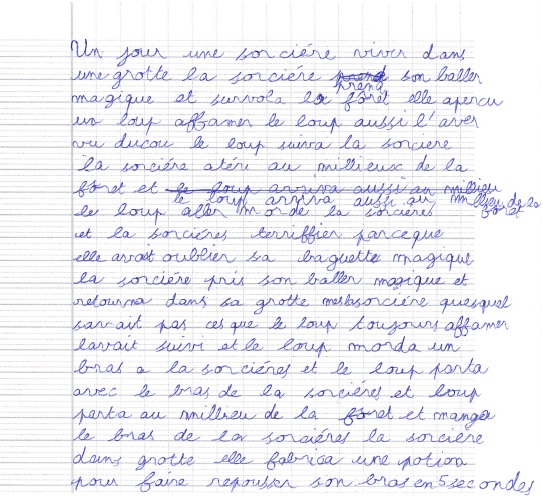 Un jour une sorciére viver dans
une grotte la sorciére prend son baller
prena
magique et survola la forêt elle apercu
un loup affamer le loup aussi l'aver
vu ducou le loup suiva la sorciere
la sorciére atéri au millieux de la
fôret et le loup arriva aussi au millieu
le loup arriva aussi au millieu de la
le loup aler morde la sorciéres fôret
et la sorciéres terriffier parceque
elle avait oublier sa baguette magique
la sorciére pris son baller magique et
retourna dans sa grotte mes la sorciére quesquel
savait pas ces que le loup toujours affamer
lavait suivi et le loup morda un
bras a la sorciéres et le loup parta
avec le bras de la sorciéres et loup
parta au millieu de la foret et mangea
le bras de la sorciéres la sorciere
dans grotte elle fabrica une potion
pour faire repousser son bras en 5 secondes